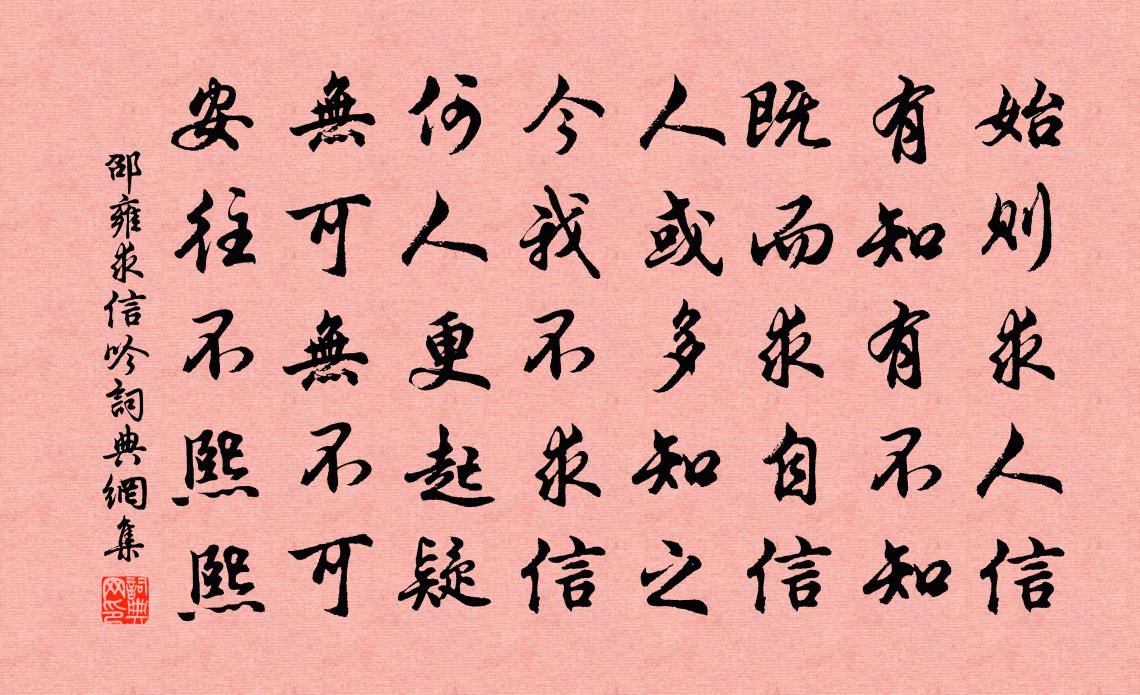 始則求人信
有知有不知
既而求自信
人或多知之
今我不求信
何人更起疑
無可無不可
安往不熙熙
邵雍求信吟詞典網集
詞典網印